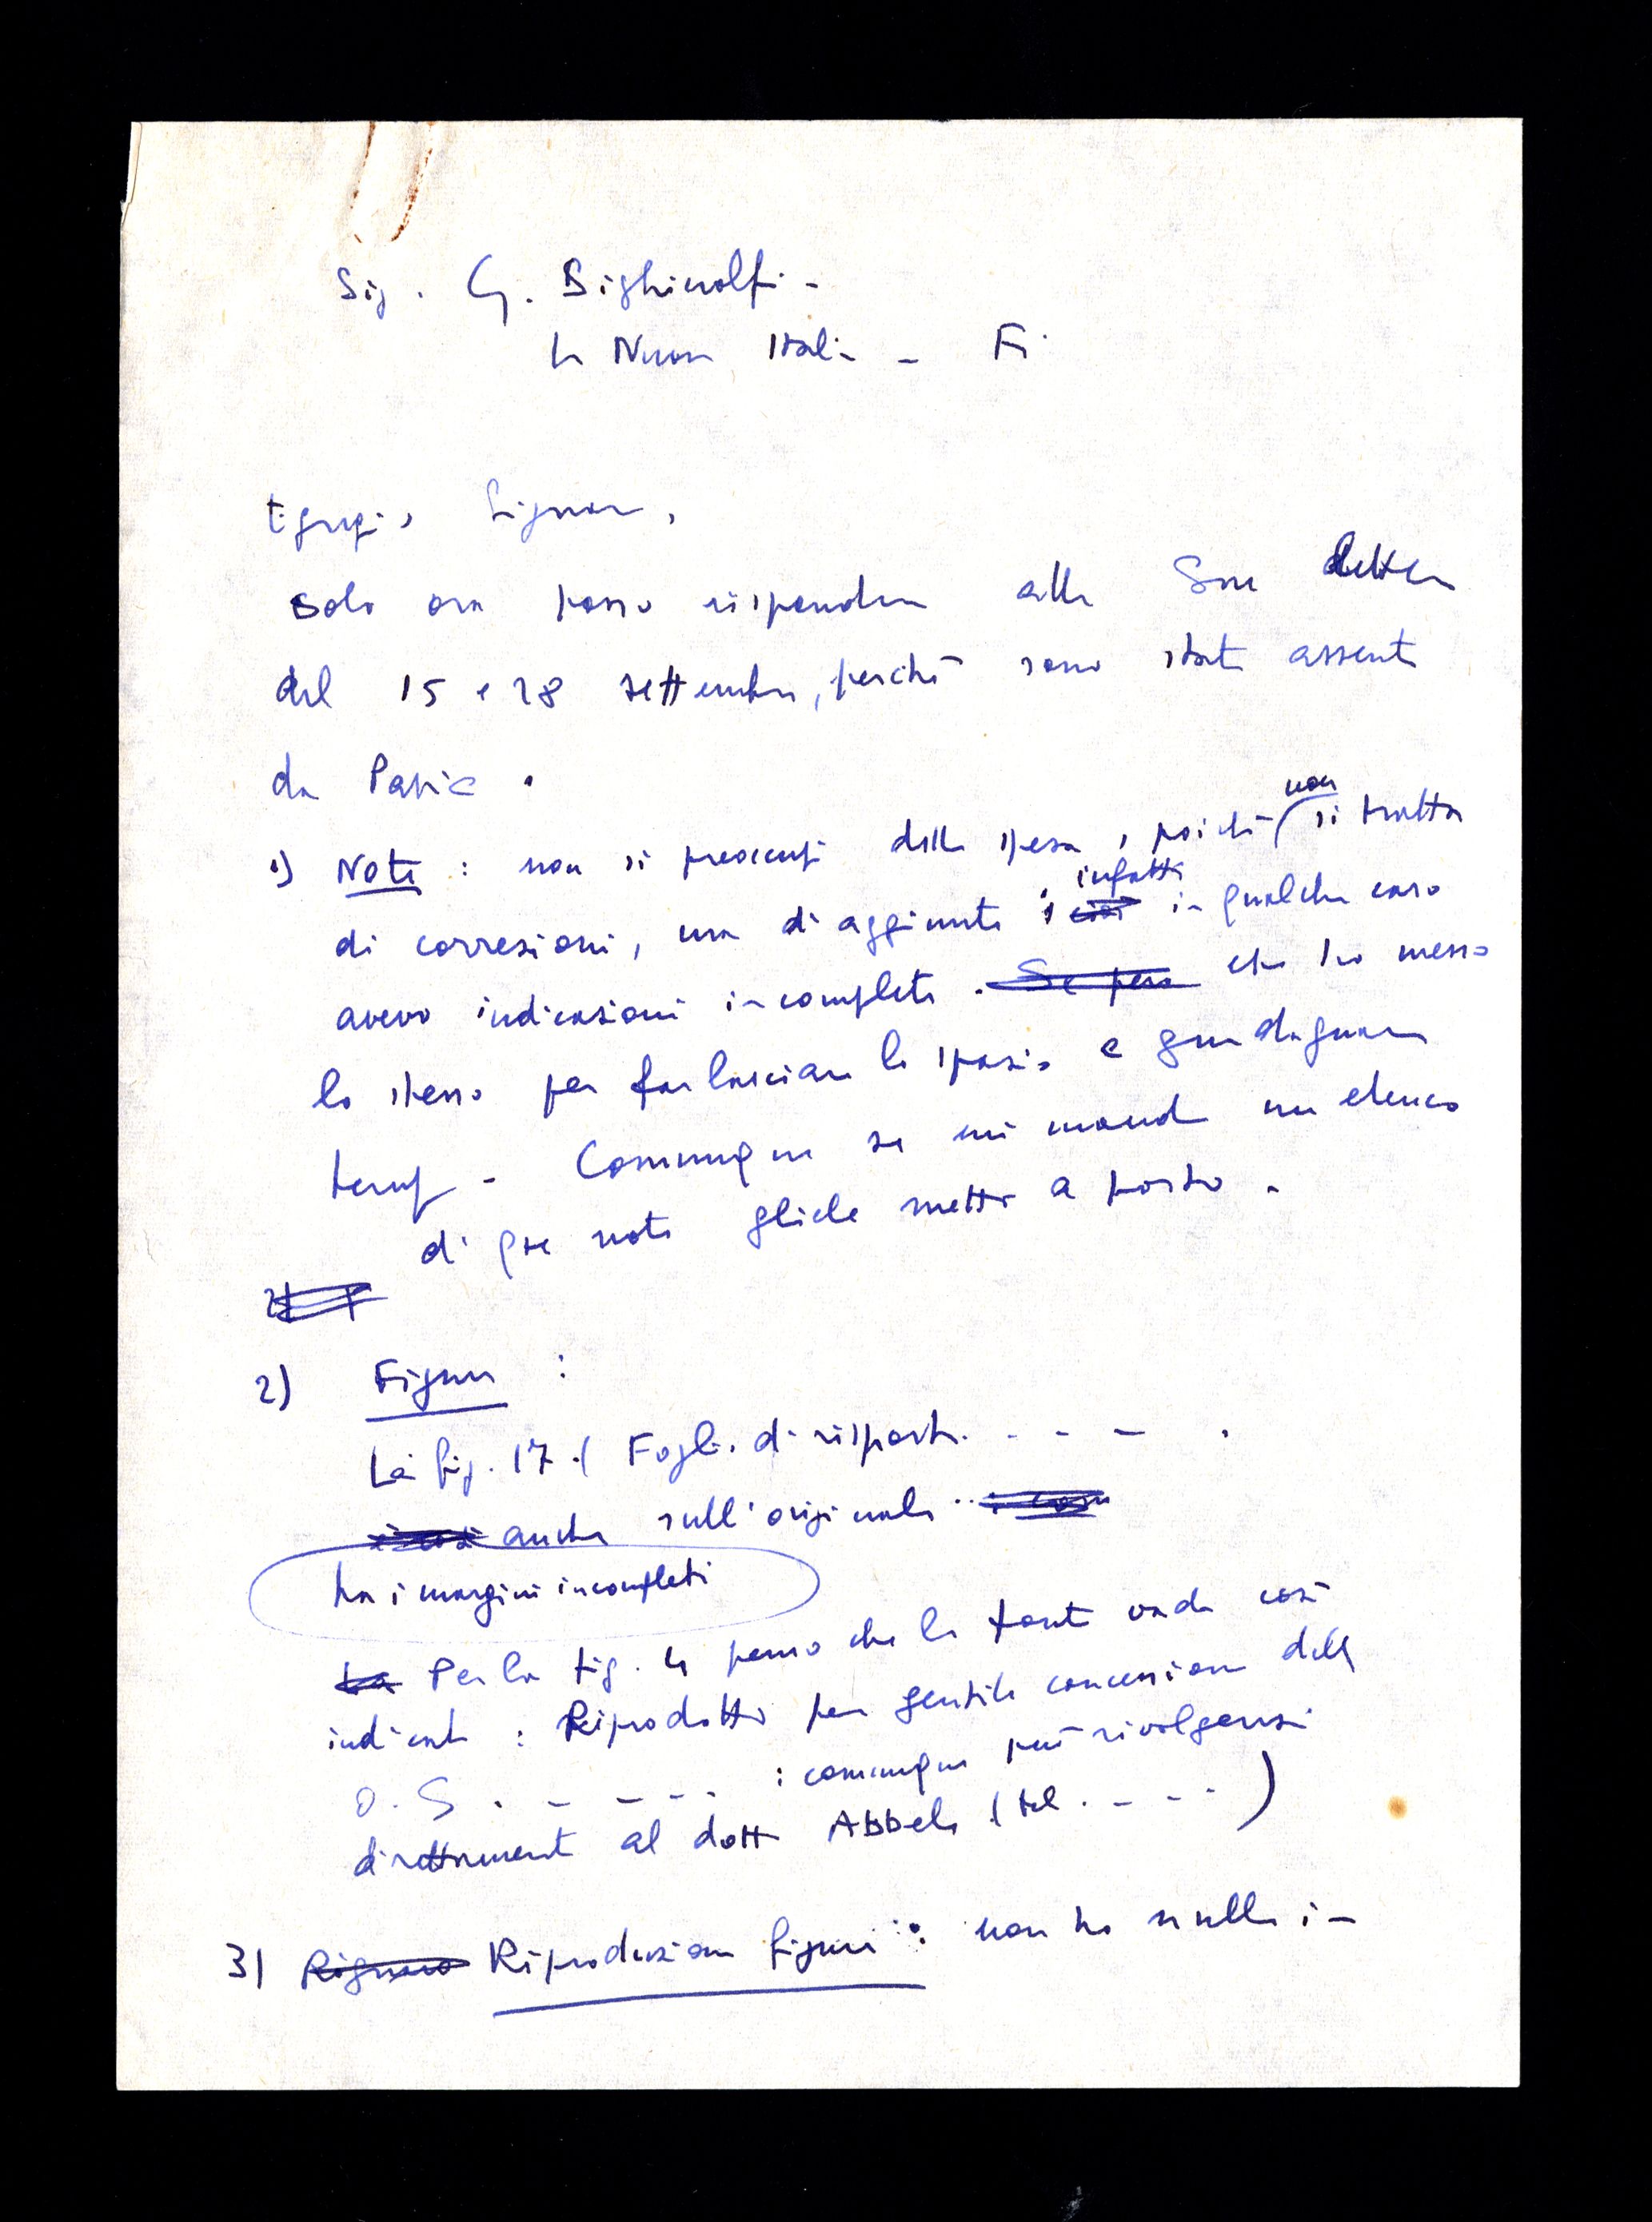 Sig. G. Bighinolfi -
La Nuova Italia - Fi.
Egregio Signore,
solo ora posso rispondere alle Sue lettere
del 15 e 28 settembre, perché sono stato assente
da Pavia.
1) Note: non si preoccupi della spesa, poiché non si tratta
di correzioni, ma di aggiunte; infatti in qualche caso
avevo indicazioni incomplete. che ho messo
lo stesso per far lasciare lo spazio e guadagnare
tempo - Comunque se mi manda un elenco
di qste note gliele metto a posto -
2) Figure :
La fig. 17 ( Foglio di risposta. - - - .
anche sull'originale
ha i margini incompleti
Per la fig. 4 penso che la fonte vada così
indicata : Riprodotto per gentile concessione delle
O.S. - - - - - : comunque può rivolgersi
direttamente al dott Abbele (tel. - - - )
3) Riproduzione figure : non ho nulla in-